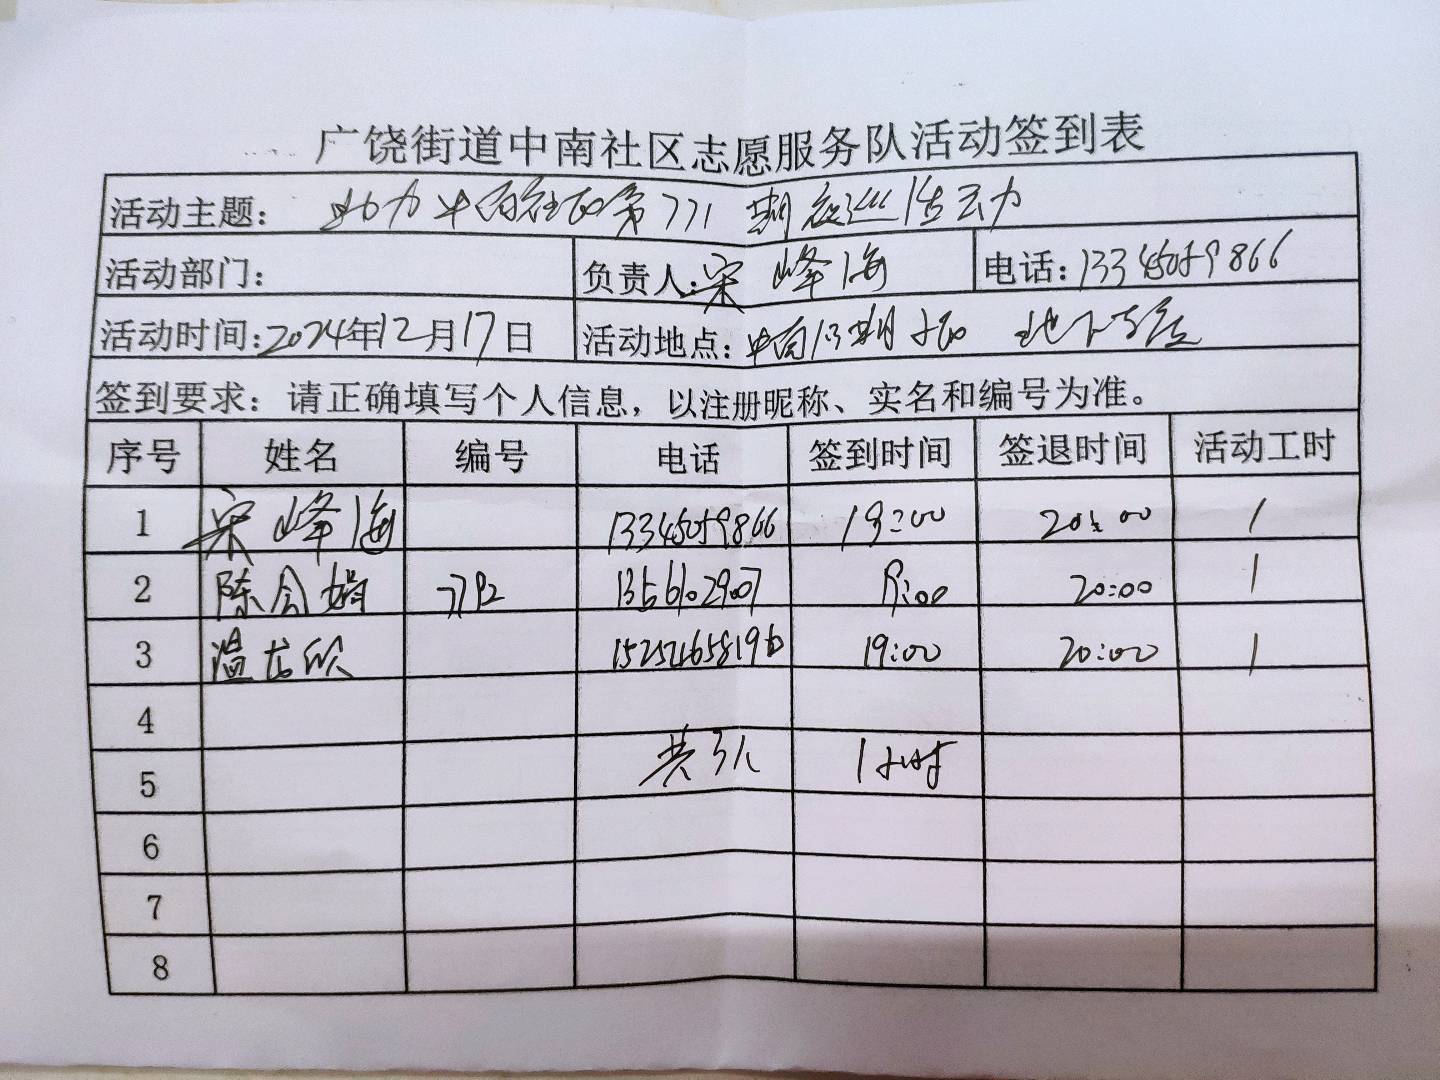 广饶街道中南社区志愿服务队活动签到表
活动主题： 助力中南社区第771期夜巡活动
活动部门： 负责人：宋峰海 电话：13345059866
活动时间：2024年12月17日 活动地点：中南 期 地下
签到要求：请正确填写个人信息，以注册昵称、实名和编号为准。
序号 姓名 编号 电话 签到时间 签退时间 活动工时
1 宋峰海 13345059866 19:00 20:00 1
2 陈会娟 13561029007 19:00 20:00 1
3 温 欣 15254658196 19:00 20:00 1
4
共3人 1小时
5
6
7
8